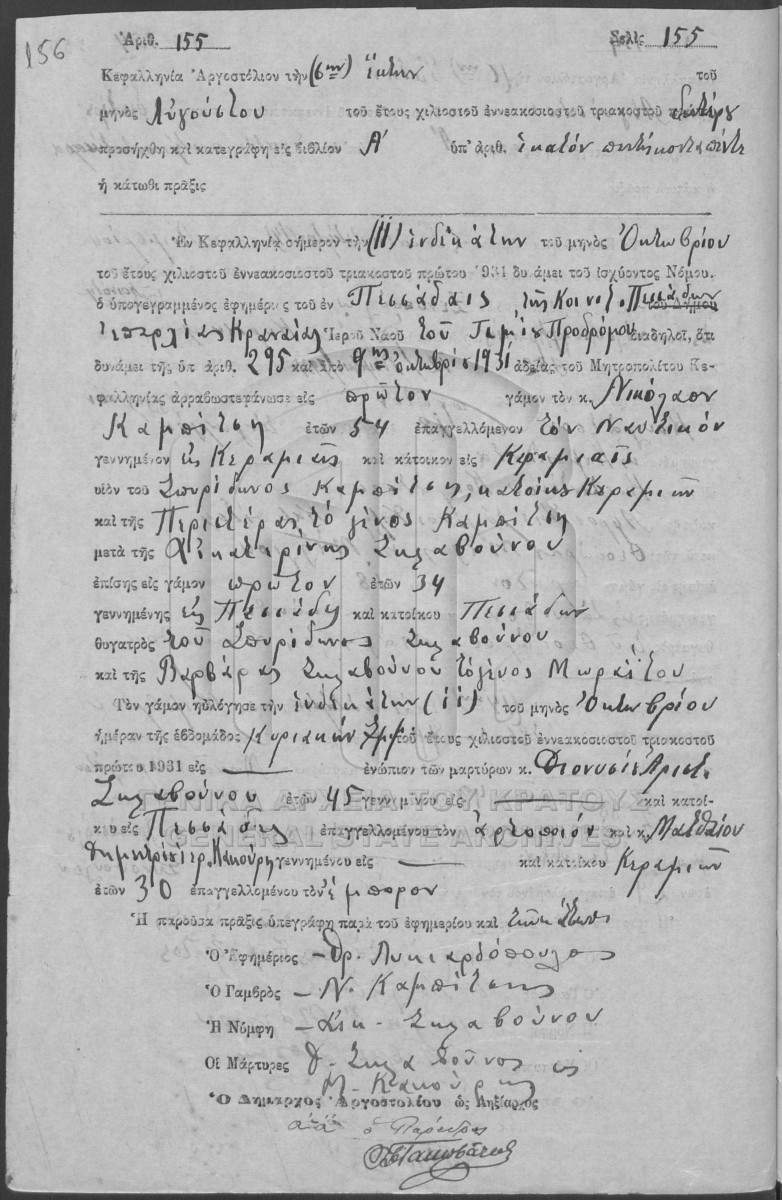 156
Ἀριθ. 155 Σελὶς 155
Κεφαλληνία Ἀργοστόλιον τὴν (6ην) ἕκτην τοῦ
μηνὸς Αὐγούστου τοῦ ἔτους χιλιοστοῦ ἐννεακοσιοστοῦ τριακοστοῦ δευτέρου
προσήχθη καὶ κατεγράφη εἰς βιβλίον Α' ὑπ' ἀριθ. ἑκατόν πεντήκοντα πέντε
ἡ κάτωθι πρᾶξις
Ἐν Κεφαλληνίᾳ σήμερον τὴν (11) ἑνδεκάτην τοῦ μηνὸς Ὀκτωβρίου
τοῦ ἔτους χιλιοστοῦ ἐννεακοσιοστοῦ τριακοστοῦ πρώτου 1931 δυνάμει τοῦ ἰσχύοντος Νόμου.
ὁ ὑπογεγραμμένος ἐφημέριος τοῦ ἐν Πεσσάδαις τῆς Κοινότ. Πεσσάδων τοῦ Δήμου
ἐπαρχίας Κραναίας Ἱεροῦ Ναοῦ τοῦ Τιμίου Προδρόμου διαδηλοῖ, ὅτι
δυνάμει τῆς ὑπ ἀριθ. 295 καὶ ἀπὸ 9ης Ὀκτωβρίου 1931 ἀδείας τοῦ Μητροπολίτου Κε-
φαλληνίας ἀρραβωστεφάνωσε εἰς πρῶτον γάμον τὸν κ. Νικόλαον
Καμπίτση ἐτῶν 54 ἐπαγγελλόμενον τὸν Ναυτικόν
γεννημένον εἰς Κεραμιαῖς καὶ κάτοικον εἰς Κεραμιαῖς
υἱὸν τοῦ Σπυρίδωνος Καμπίτση, κατοίκου Κεραμιῶν
καὶ τῆς Περιστέρας τὸ γένος Καμπίτση
μετὰ τῆς Αἰκατερίνης Σκλαβούνου
ἐπίσης εἰς γάμον πρῶτον ἐτῶν 34
γεννημένης εἰς Πεσσάδες καὶ κατοίκου Πεσσάδων
θυγατρὸς τοῦ Σπυρίδωνος Σκλαβούνου
καὶ τῆς Βαρβάρας Σκλαβούνου τὸ γένος Μωραΐτου
Τὸν γάμον ηὐλόγησε τὴν ἑνδεκάτην (11) τοῦ μηνὸς Ὀκτωβρίου
ἡμέραν τῆς ἑβδομάδος Κυριακήν τοῦ ἔτους χιλιοστοῦ ἐννεακοσιοστοῦ τριακοστοῦ
πρώτου 1931 εἰς — ἐνώπιον τῶν μαρτύρων κ. Διονυσίου
Σκλαβούνου ἐτῶν 45 γεννημένου εἰς — καὶ κατοί-
κου εἰς Πεσσάδες ἐπαγγελλομένου τὸν ἀρτοποιόν καὶ κ. Ματθαίου
Δημητρίου ἱερ. Κακούρη γεννημένου εἰς — καὶ κατοίκου Κεραμιῶν
ἐτῶν 30 ἐπαγγελλομένου τὸν ἔμπορον
Ἡ παροῦσα πρᾶξις ὑπεγράφη παρὰ τοῦ ἐφημερίου καὶ
Ὁ Ἐφημέριος – Λυκιαρδόπουλος
Ὁ Γαμβρὸς – Ν. Καμπίτσης
Ἡ Νύμφη – Αἰκ. Σκλαβούνου
Οἱ Μάρτυρες Δ. Σκλαβοῦνος
Μ. Κακούρης
Ὁ Δήμαρχος Ἀργοστολίου ὡς Ληξίαρχος
ὁ Πάρεδρος
ΓΕΝΙΚΑ ΑΡΧΕΙΑ ΤΟΥ ΚΡΑΤΟΥΣ
GENERAL STATE ARCHIVES